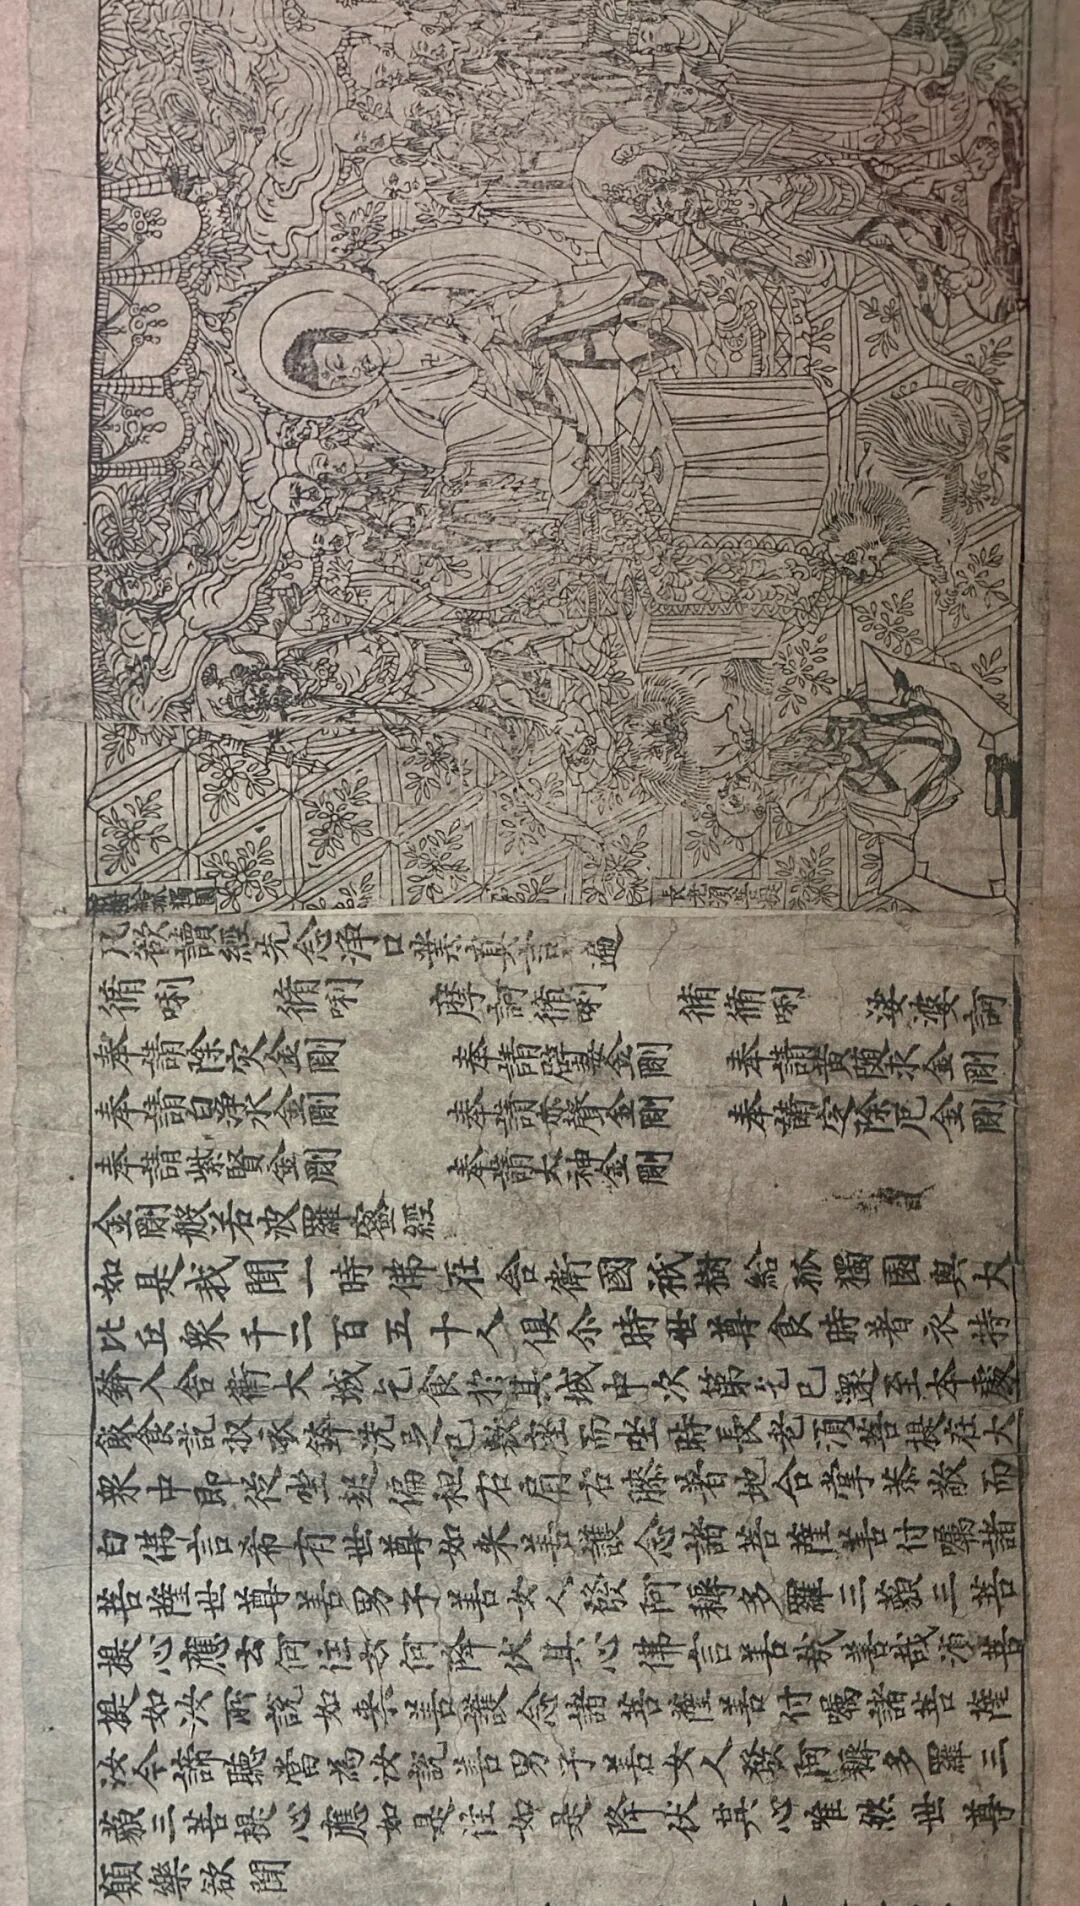 祇樹給孤獨園
長老須菩提
凡欲讀經先念淨口業真言一遍
脩唎 脩唎 摩訶脩唎 脩脩唎 娑婆訶
奉請除灾金剛 奉請辟毒金剛 奉請黃随求金剛
奉請白淨水金剛 奉請赤聲金剛 奉請定除厄金剛
奉請紫賢金剛 奉請大神金剛
金剛般若波羅蜜經
如是我聞一時佛在舍衛國祇樹給孤獨園與大
比丘衆千二百五十人俱尒時世尊食時著衣持
鉢入舍衛大城乞食於其城中次第乞已還至本處
飯食訖収衣鉢洗足已敷座而坐時長老須菩提在大
衆中即從座起偏袒右肩右膝著地合掌恭敬而
白佛言希有世尊如来善護念諸菩薩善付囑諸
菩薩世尊善男子善女人發阿耨多羅三藐三菩
提心應云何住云何降伏其心佛言善哉善哉須菩
提如汝所說如来善護念諸菩薩善付囑諸菩薩
汝今諦聽當為汝說善男子善女人發阿耨多羅三
藐三菩提心應如是住如是降伏其心唯然世尊
願樂欲聞